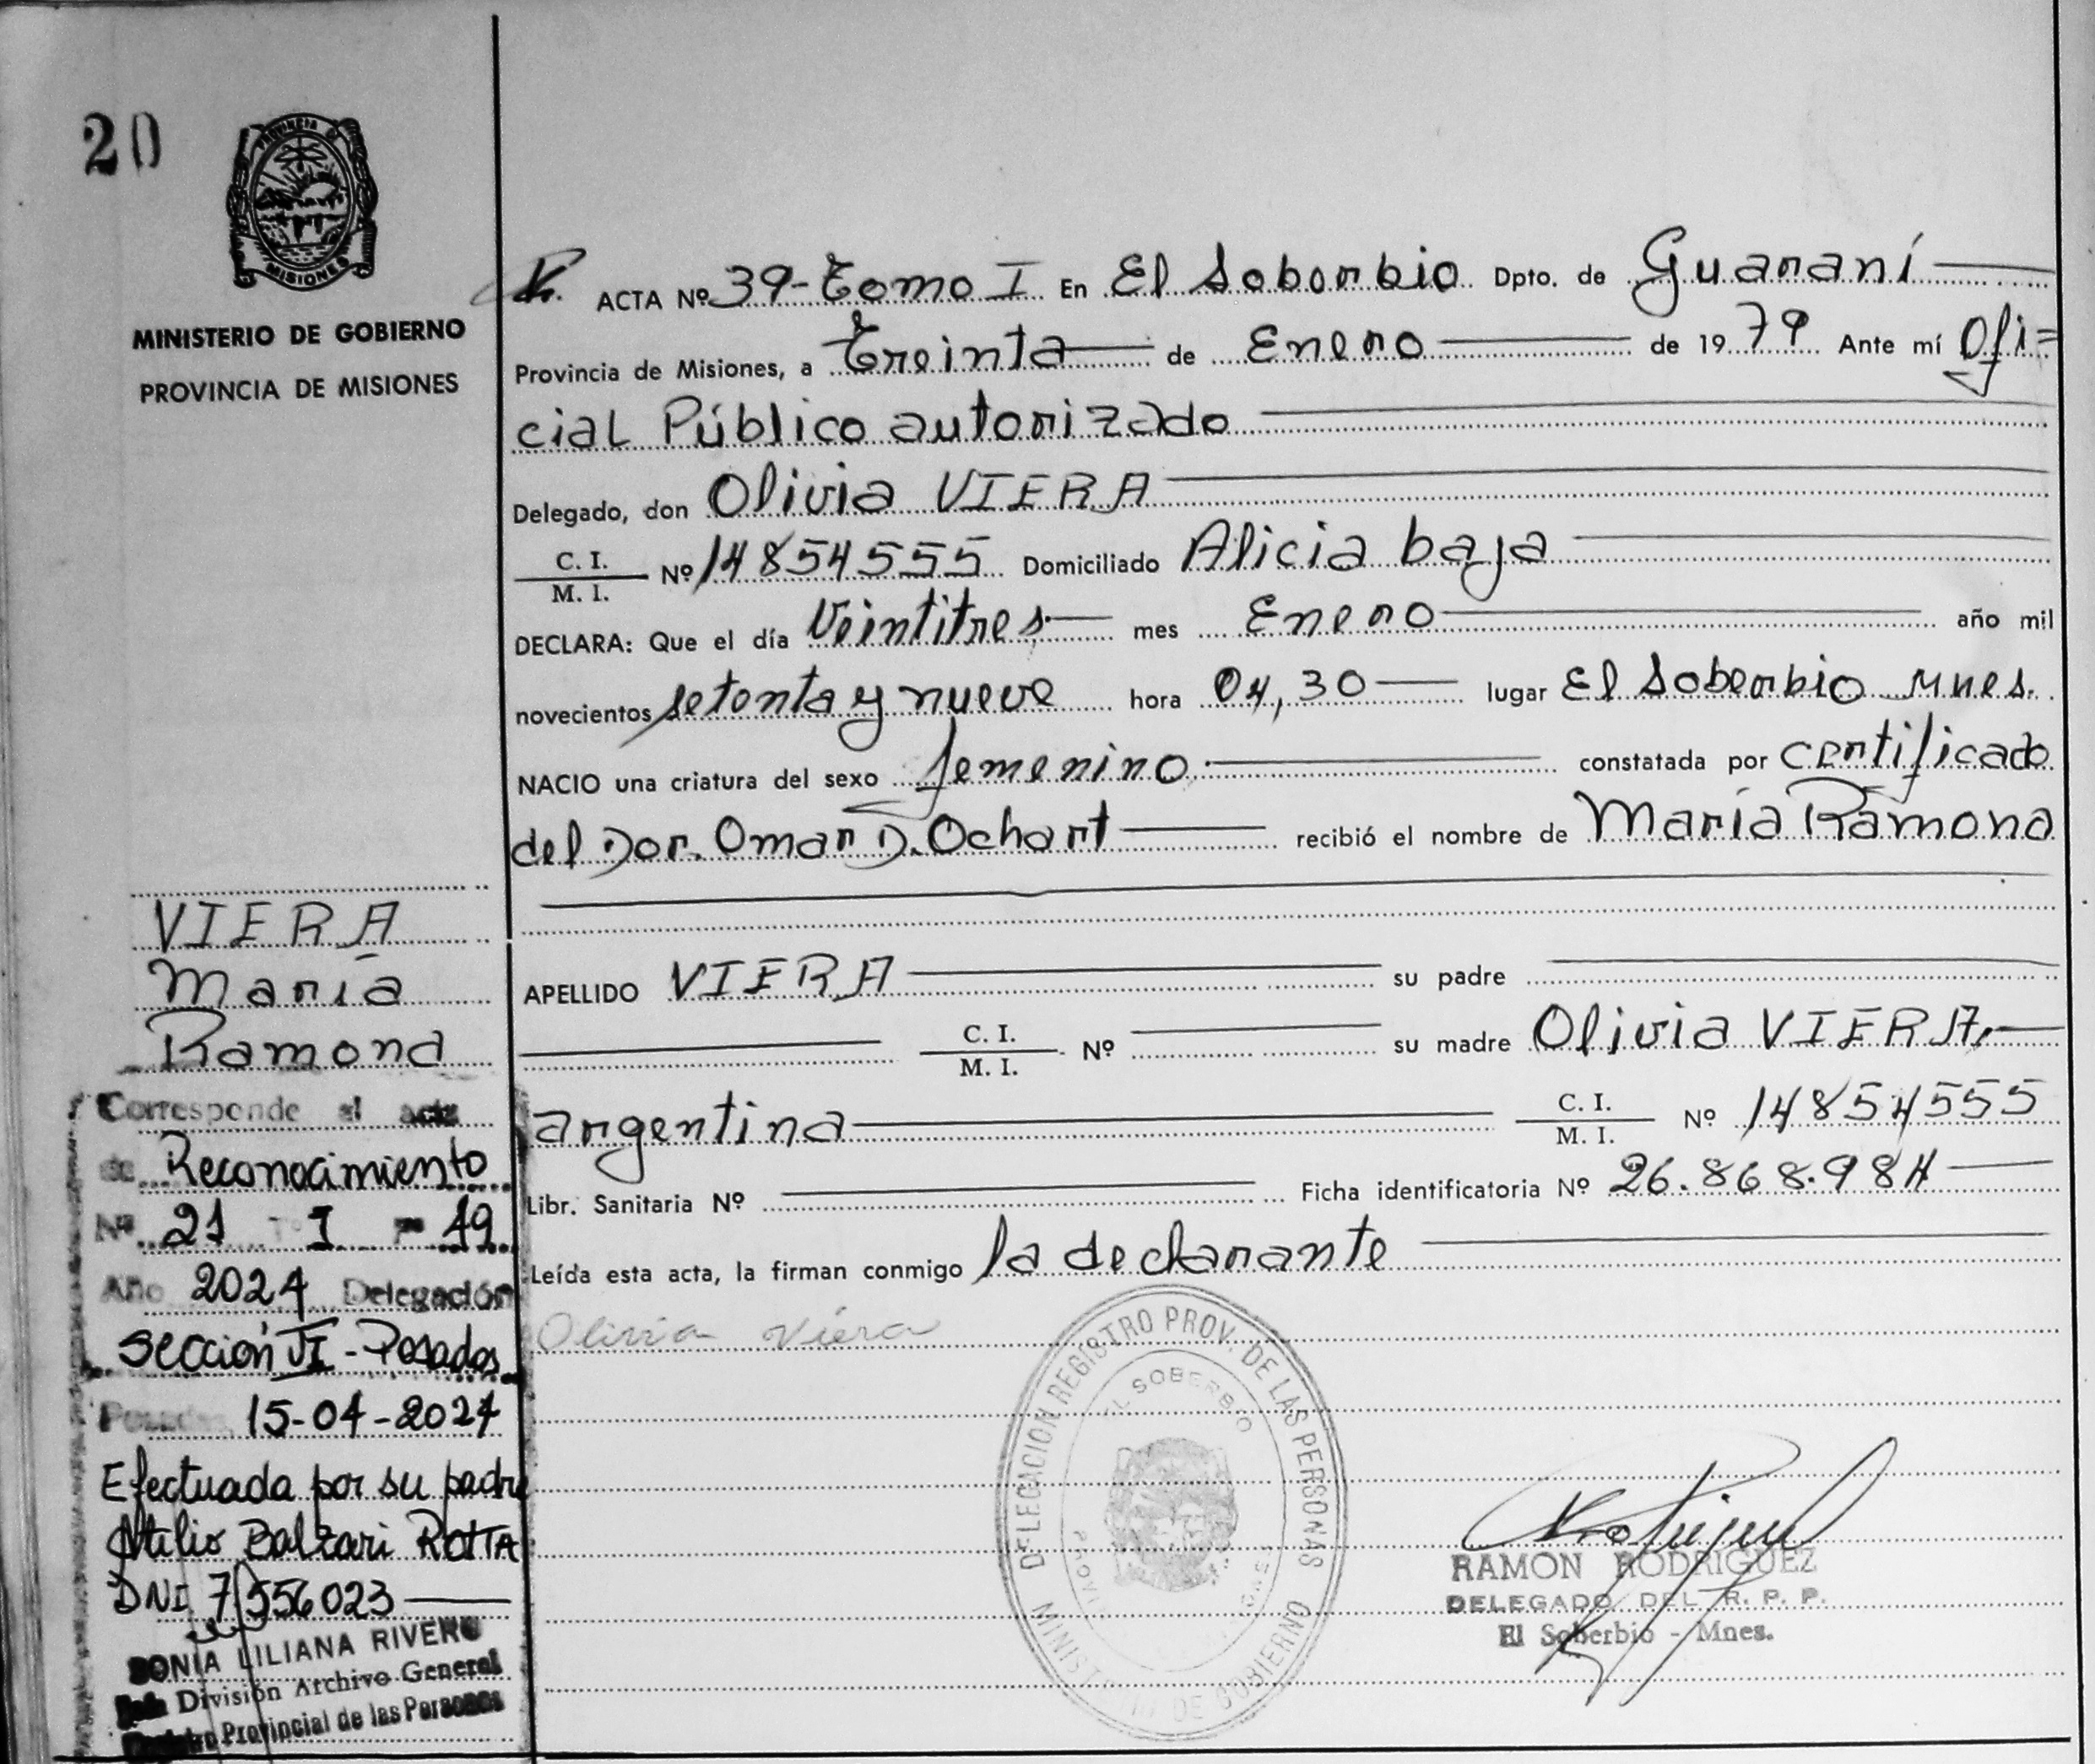 20
PROVINCIA DE
MISIONES
MINISTERIO DE GOBIERNO
PROVINCIA DE MISIONES
ACTA Nº 39-Tomo I En El Soberbio Dpto. de Guaraní
Provincia de Misiones, a Treinta de Enero de 1979 Ante mí Ofi=
cial Público autorizado
Delegado, don Olivia VIERA
C. I.
M. I. Nº 14854555 Domiciliado Alicia baja
DECLARA: Que el día Veintitres mes Enero año mil
novecientos setenta y nueve hora 04,30 lugar El Soberbio Mnes.
NACIO una criatura del sexo femenino constatada por certificado
del Dor. Omar D. Ochart recibió el nombre de María Ramona
APELLIDO VIERA su padre
C. I.
M. I. Nº su madre Olivia VIERA.
argentina C. I.
M. I. Nº 14854555
Libr. Sanitaria Nº Ficha identificatoria Nº 26.868.984
Leída esta acta, la firman conmigo la declarante
Olivia Viera
VIERA
María
Ramona
Corresponde al acta
de Reconocimiento
Nº 21 Tº I Fº 19
Año 2024 Delegación
Sección VI - Posadas
Posadas, 15-04-2024
Efectuada por su padre
Atilio Balzari ROTTA
DNI 7556023
SONIA LILIANA RIVERO
Jefa División Archivo General
Registro Provincial de las Personas
DELEGACION REGISTRO PROV. DE LAS PERSONAS
EL SOBERBIO
MINISTERIO DE GOBIERNO
RAMON RODRIGUEZ
DELEGADO DEL R. P. P.
El Soberbio - Mnes.